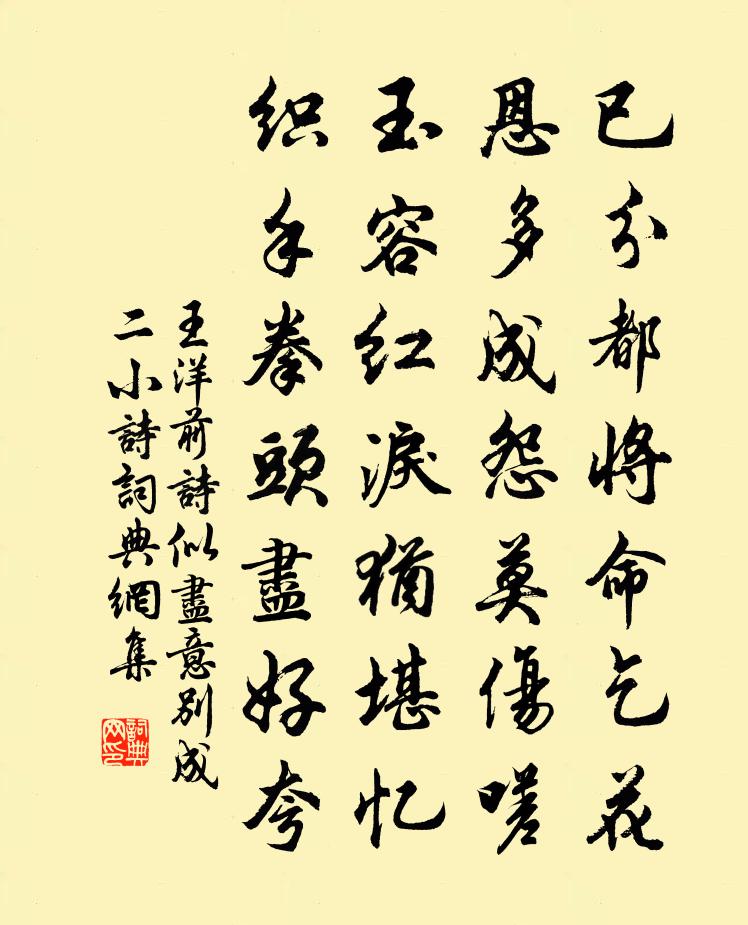 已分都將命乞花
恩多成怨莫傷嗟
玉容红淚猶堪忆
织手拳頭盡好夸
王洋前詩似盡意別成
二小詩詞典網集
詞典
网印